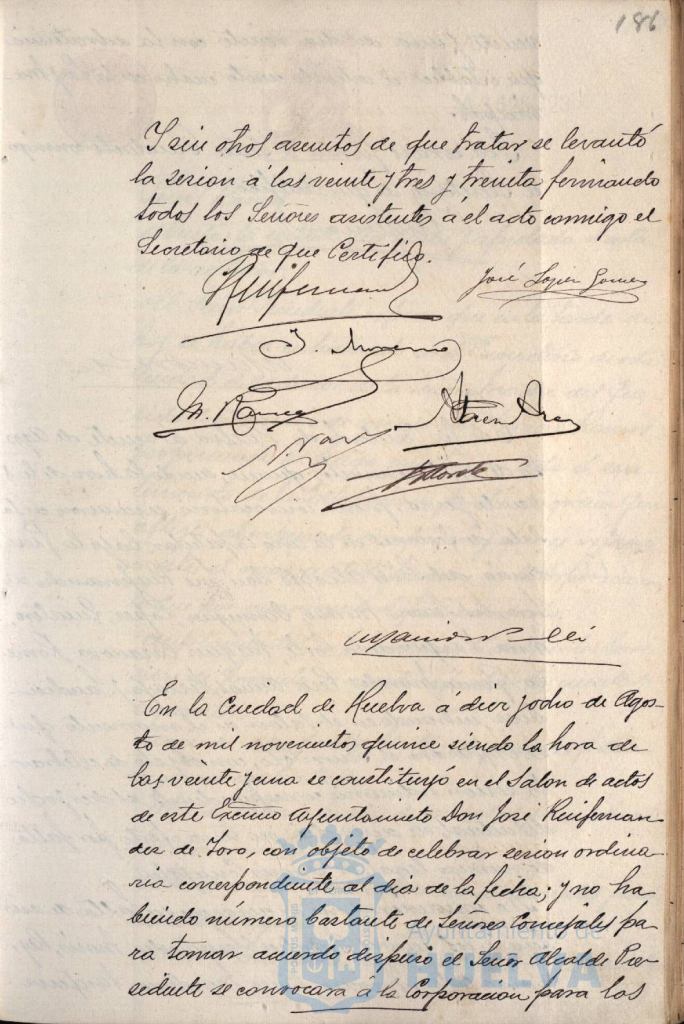 186
I sin otros asuntos de que tratar se levantó
la sesion á las veinte y tres y treinta firmando
todos los Señores asistentes á el acto conmigo el
Secretario de que Certifico.
Ruifernand
José Lopez Gomez
J. Moreno
M.
En la Ciudad de Huelva á diez y ocho de Agos-
to de mil novecientos quince siendo la hora de
las veinte y una se constituyó en el Salon de actos
de este Excmo Ayuntamiento Don José Ruifernan-
dez de Toro, con objeto de celebrar sesion ordina-
ria correspondiente al dia de la fecha; y no ha
biendo número bastante de Señores Concejales pa-
ra tomar acuerdo dispuso el Señor Alcalde Pre-
sidente se convocara á la Corporacion para los
Ayuntamiento de
HUELVA